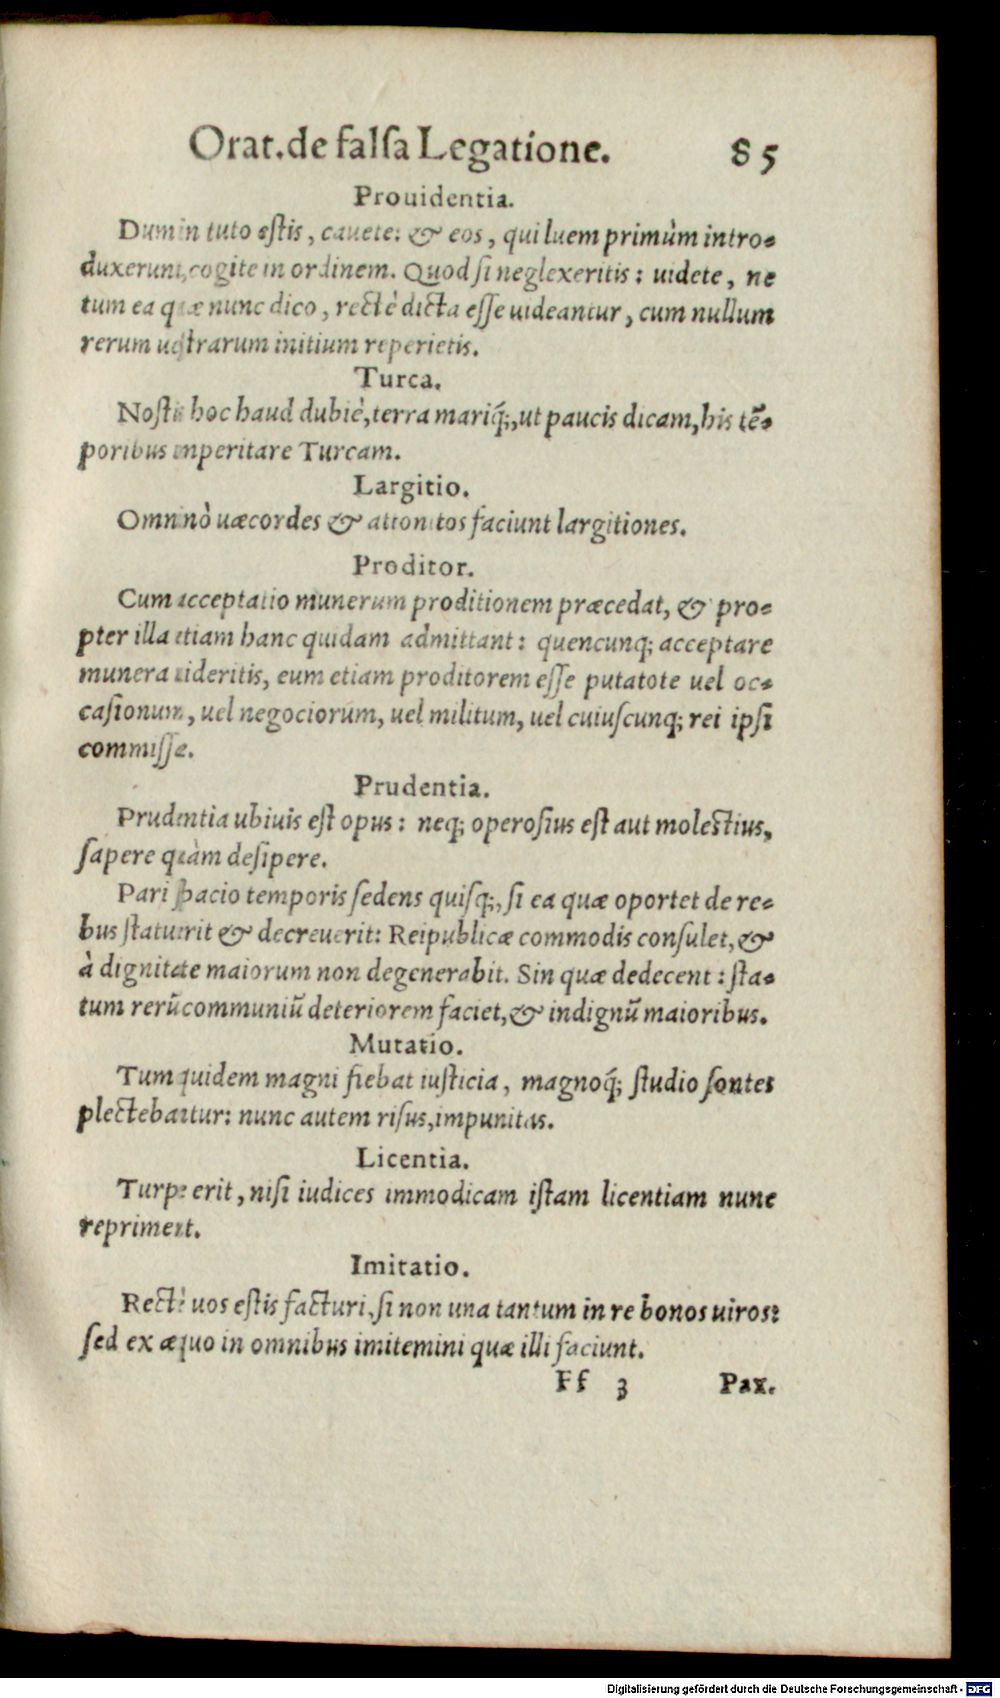 Orat. de falſa Legatione. 85
Prouidentia.
Dum in tuto eſtis, cauete: & eos, qui luem primùm intro-
duxerunt, cogite in ordinem. Quod ſi neglexeritis: uidete, ne
tum ea quæ nunc dico, rectè dicta eſſe uideantur, cum nullum
rerum ueſtrarum initium reperietis.
Turca.
Noſtis hoc haud dubiè, terra mariq́;, ut paucis dicam, his tē-
poribus imperitare Turcam.
Largitio.
Omninò uæcordes & attonitos faciunt largitiones.
Proditor.
Cum acceptatio munerum proditionem præcedat, & pro-
pter illa etiam hanc quidam admittant: quencunq; acceptare
munera uideritis, eum etiam proditorem eſſe putatote uel oc-
caſionum, uel negociorum, uel militum, uel cuiuſcunq; rei ipſi
commiſſæ.
Prudentia.
Prudentia ubiuis eſt opus: neq; operoſius eſt aut moleſtius,
ſapere quàm deſipere.
Pari ſpacio temporis ſedens quiſq;, ſi ea quæ oportet de re-
bus ſtatuerit & decreuerit: Reipublicæ commodis conſulet, &
à dignitate maiorum non degenerabit. Sin quæ dedecent: ſta-
tum rerū communiū deteriorem faciet, & indignū maioribus.
Mutatio.
Tum quidem magni fiebat iuſticia, magnoq́; ſtudio ſontes
plectebantur: nunc autem riſus, impunitas.
Licentia.
Turpe erit, niſi iudices immodicam iſtam licentiam nunc
repriment.
Imitatio.
Rectè uos eſtis facturi, ſi non una tantum in re bonos uiros:
ſed ex æquo in omnibus imitemini quæ illi faciunt.
Ff 3 Pax.
Digitalisierung gefördert durch die Deutsche Forschungsgemeinschaft - DFG